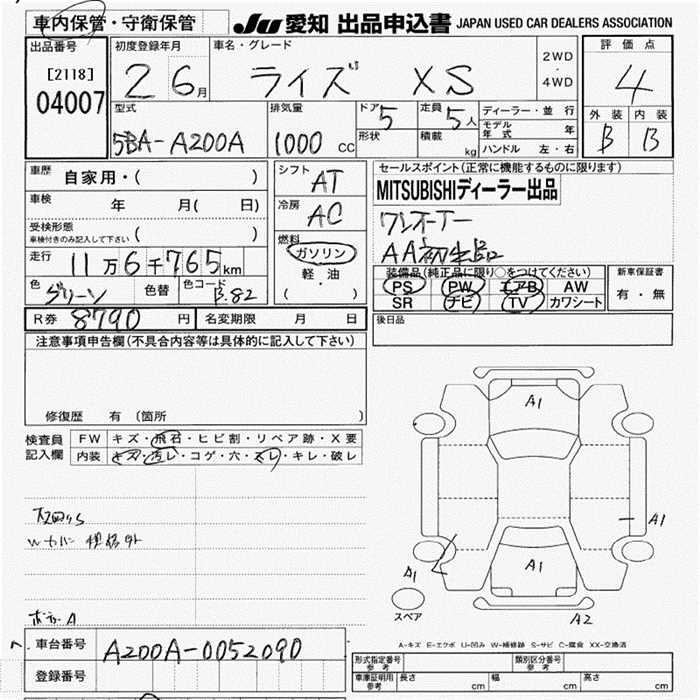 車内保管・守衛保管
JU 愛知 出品申込書 JAPAN USED CAR DEALERS ASSOCIATION
出品番号
[2118]
04007
初度登録年月
2 6月
車名・グレード
ライズ XS
2WD
・
4WD
評価点
4
外装 内装
B B
型式
5BA-A200A
排気量
1000 CC
ドア 5
形状
定員 5人
積載 kg
ディーラー・並行
モデル年式 年
ハンドル 左・右
車歴 自家用・( )
車検 年 月( 日)
受検形態
車検付きのみ記入して下さい ( )
走行 11万6千765km
色 グリーン 色替 色コード B.82
シフト
AT
冷房
AC
燃料
ガソリン
軽・油
( )
セールスポイント(正常に機能するものに限ります)
MITSUBISHIディーラー出品
ワンオーナー
AA初出品
装備品(純正品に限り○をつけてください)
PS PW エアB AW
SR ナビ TV カワシート
新車保証書
有・無
R券 8790円 名変期限 月 日
後日品
注意事項申告欄(不具合内容等は具体的に記入して下さい)
修復歴 有 (箇所
検査員記入欄
FW キズ・飛石・ヒビ割・リペア跡・X要
内装 キズ・汚レ・コゲ・穴・スレ・キレ・破レ
規格外
A
A1
A1
A1
A1
A2
スペア
A-キズ E-エクボ U-凹み W-補修跡 S-サビ C-腐食 XX-交換済
車台番号 A200A-0052090
登録番号
形式指定番号 参考
類別区分番号 参考
車庫証明用 参考 長さ cm 幅 cm 高さ cm